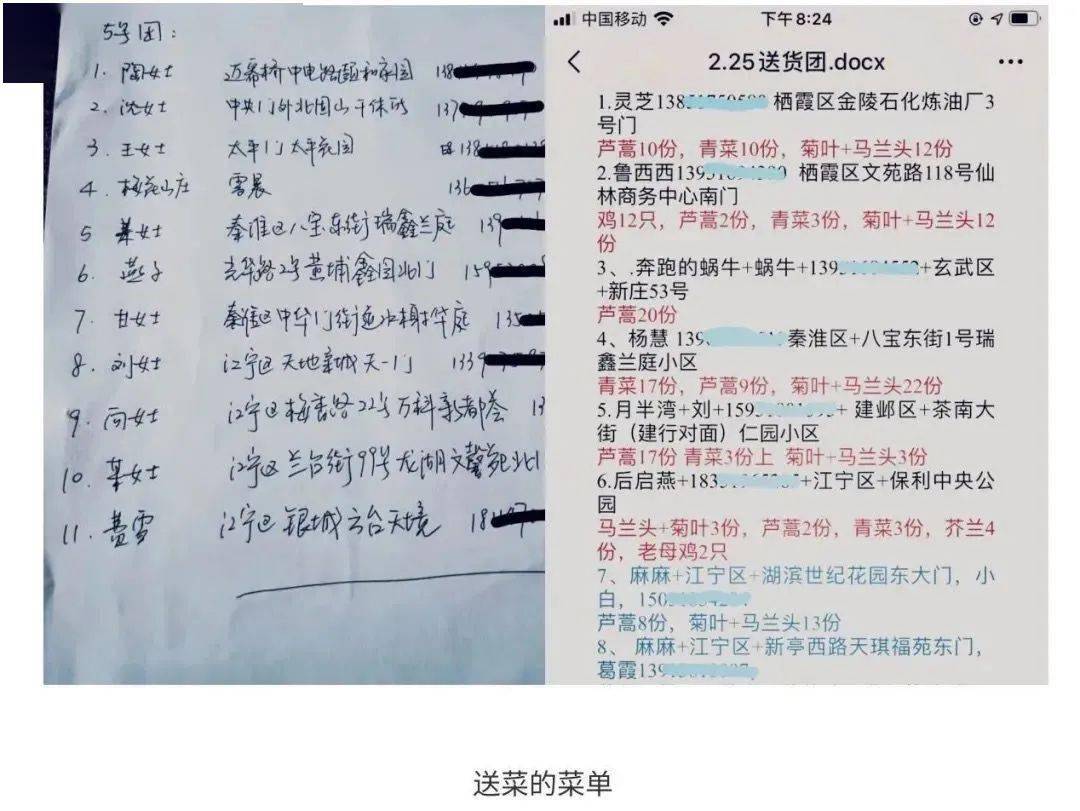 5号团:
1. 陶女士 迈皋桥中电路颐和家园 138
2. 沈女士 中央门外北固山干休所 137
3. 王女士 太平门太平花园 138
4. 梅花山庄 雪晨 136
5 女士 秦淮区八宝东街瑞鑫兰庭 139
6. 燕子 光华路2号黄埔鑫园北门 159
7. 甘女士 秦淮区中华门街道 华庭 135
8. 刘女士 江宁区天地新城天一门 1339
9. 向女士 江宁区梅香路22号万科新都荟 13
10. 女士 江宁区兰台街99号龙湖文馨苑北
11. 费雪 江宁区银城云台天境 18
中国移动 下午8:24
2.25送货团.docx
1.灵芝138 栖霞区金陵石化炼油厂3
号门
芦蒿10份，青菜10份，菊叶+马兰头12份
2.鲁西西139 栖霞区文苑路118号仙
林商务中心南门
鸡12只，芦蒿2份，青菜3份，菊叶+马兰头12
份
3、.奔跑的蜗牛+蜗牛+139 +玄武区
+新庄53号
芦蒿20份
4、杨慧 139 秦淮区+八宝东街1号瑞
鑫兰庭小区
青菜17份，芦蒿9份，菊叶+马兰头22份
5.月半湾+刘+159 + 建邺区+茶南大
街（建行对面）仁园小区
芦蒿17份 青菜3份上 菊叶+马兰头3份
6.后启燕+183 +江宁区+保利中央公
园
马兰头+菊叶3份，芦蒿2份，青菜3份，芥兰4
份，老母鸡2只
7、麻麻+江宁区+湖滨世纪花园东大门，小
白，150
芦蒿8份，菊叶+马兰头13份
8、 麻麻+江宁区+新亭西路天琪福苑东门，
葛霞139
送菜的菜单